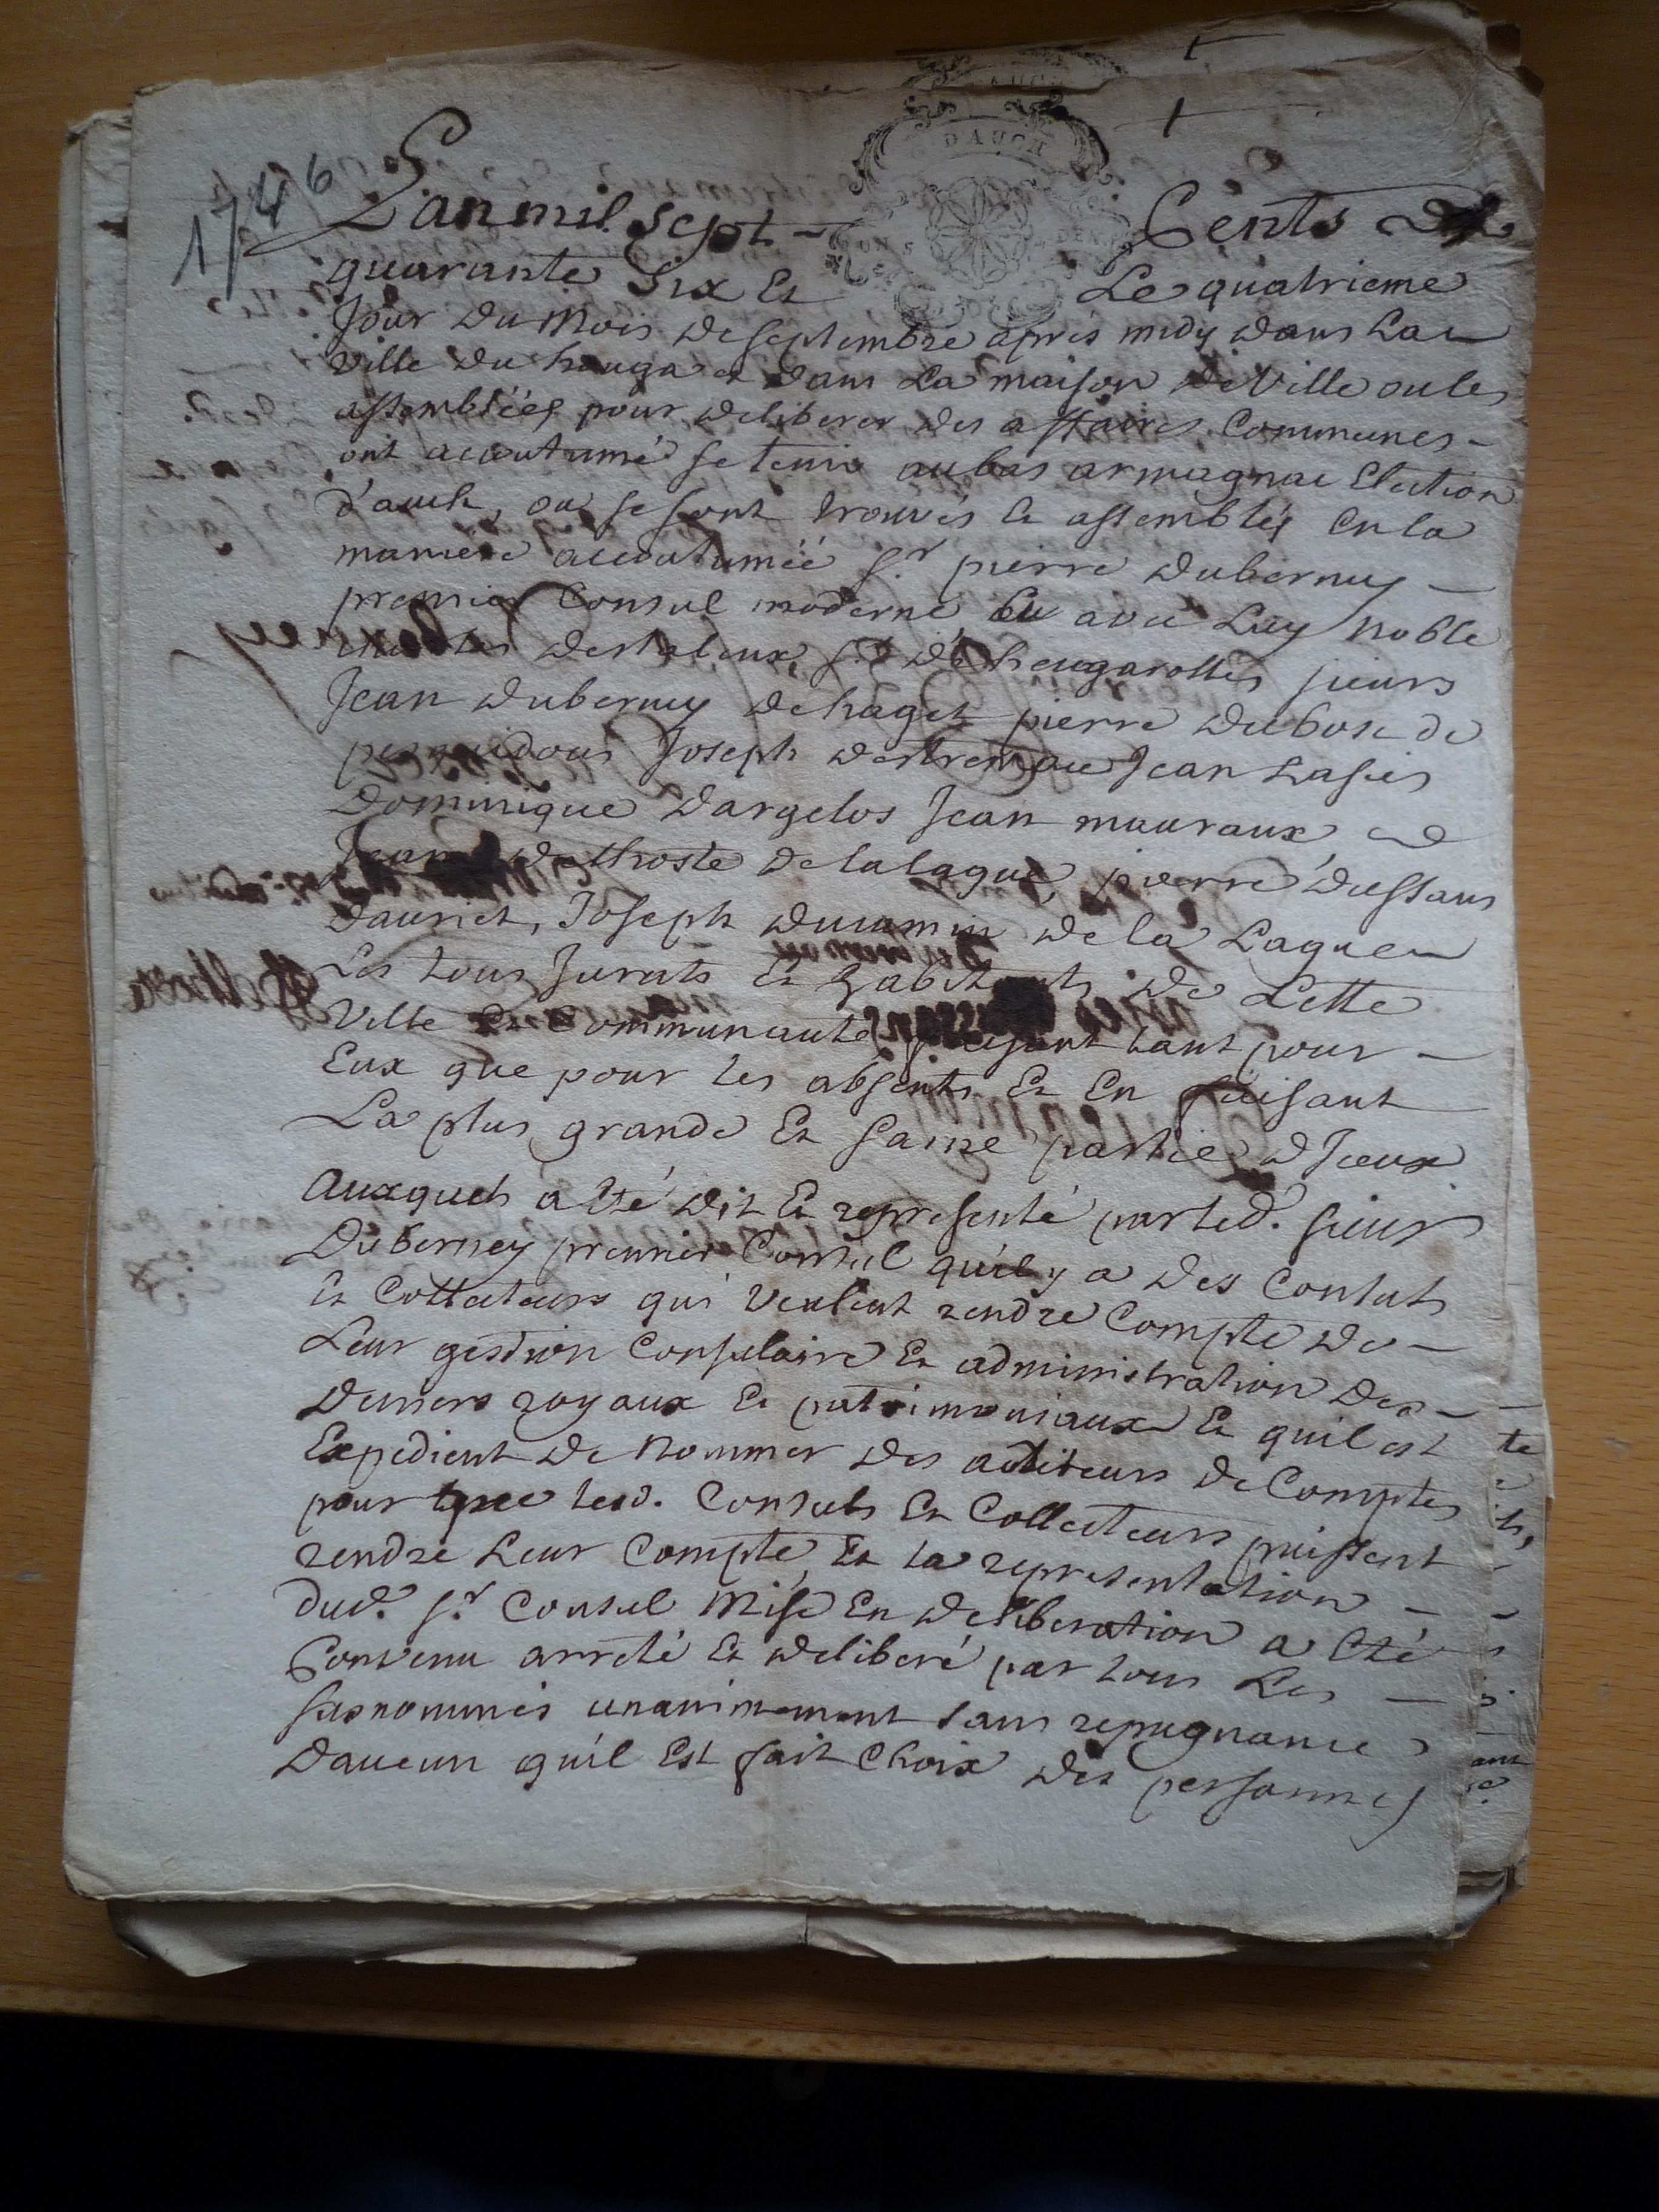 1746
D'AUCH
L'an mil sept - Cents
quarante Six Et Le quatrieme
Jour du mois de septembre apres midy dans La
ville du houga et dans La maison de Ville ou les
assemblées pour deliberer des affaires Communes -
ont accoutumé se tenir au bas armagnac Election
d'auch, ou se sont trouvés Et assemblés En la
maniere accoutumée Sr pierre duberney -
premier Consul moderne avec Luy noble
sr de hougarottes sieurs
Jean duberney de haget pierre dubosc de
Joseph destremau Jean Lafies
Dominique dargelos Jean mauraux
Jean de lalague, pierre dussans
dauriet, Joseph ducamin de la Lague
Les tous Jurats Et habitants de Cette
Ville Et Communauté faisant tant pour -
Eux que pour les absents Et En faisant
La plus grande Et saine partie d'Iceux
Auxquels a eté dit Et representé par led. sieur
Duberney premier Consul qu'il y a des Consuls
Et Collecteurs qui veulent rendre Compte de -
Leur gestion Consulaire Et administration des -
deniers royaux Et patrimoniaux Et quil est
Expedient de nommer des auditeurs de Comptes
pour que lesd. Consuls Et Collecteurs puissent
rendre Leur Compte, Et la representation -
dud. sr. Consul Mise En deliberation a Eté
Convenu arreté Et deliberé par tous Les -
susnommés unanimement sans repugnance
Daucun qu'il Est fait Choix des personnes